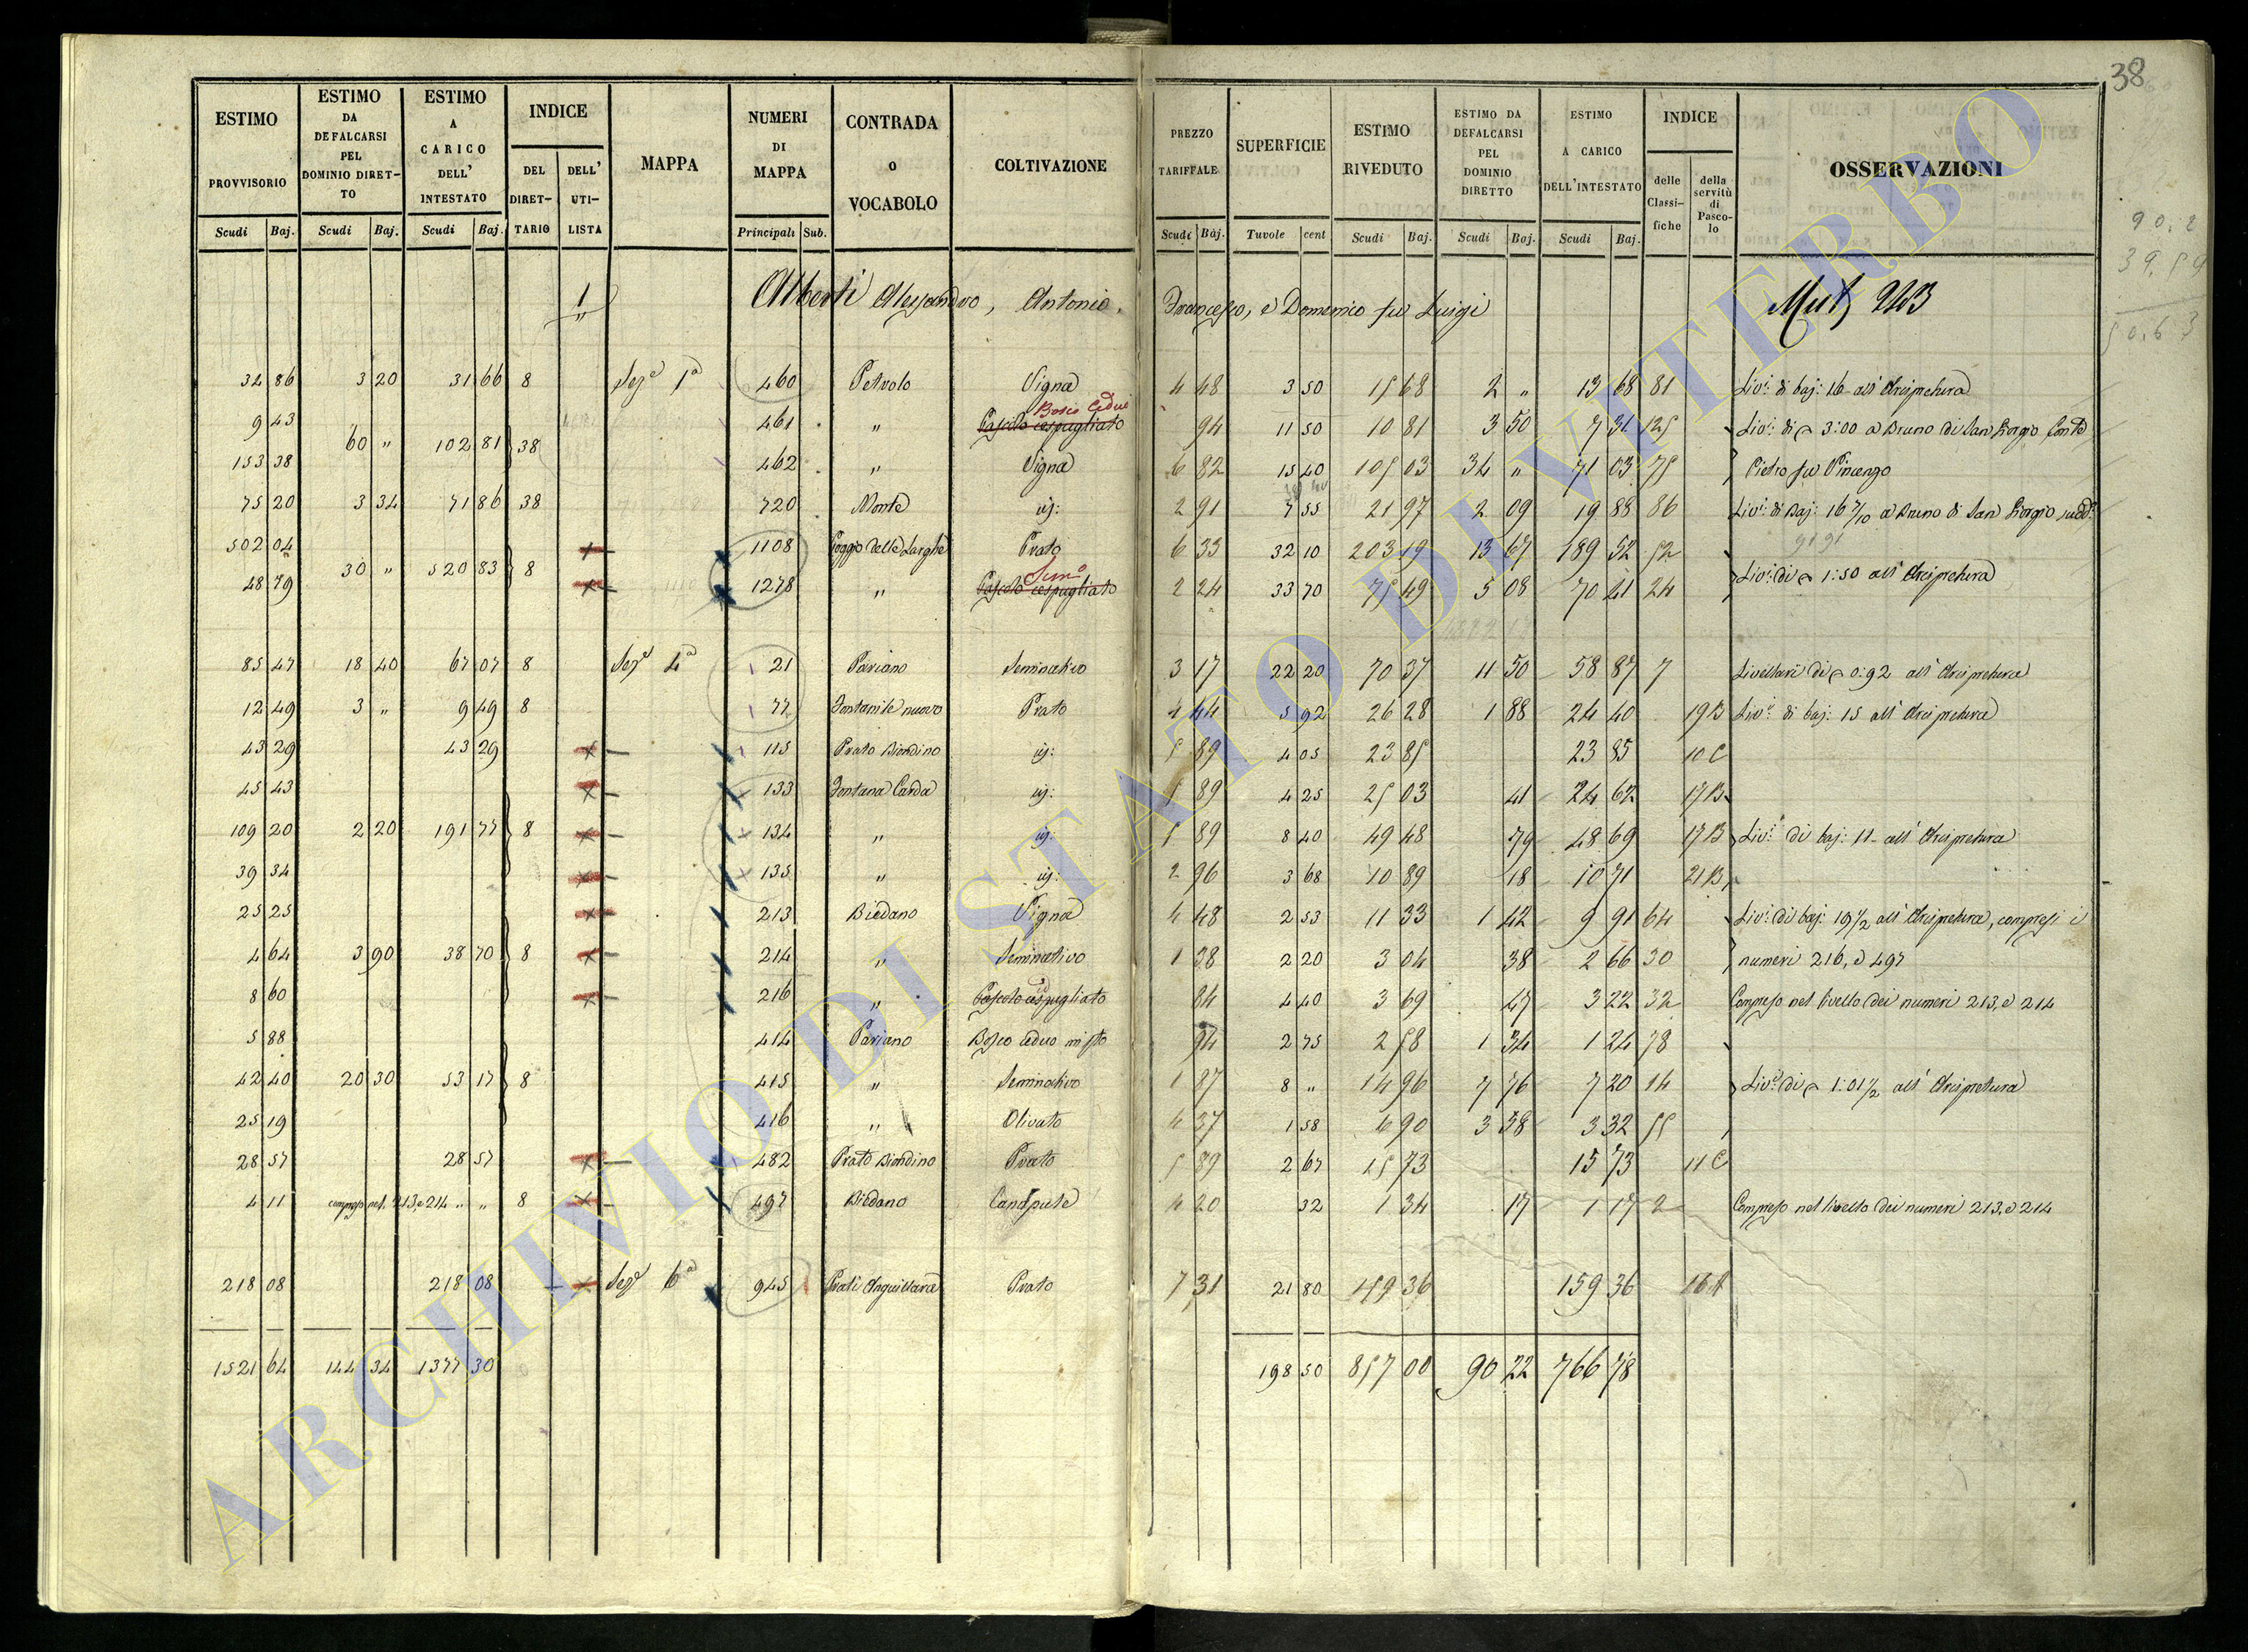 38
ESTIMO PROVVISORIO | ESTIMO DA DEFALCARSI PEL DOMINIO DIRET-TO | ESTIMO A CARICO DELL' INTESTATO | INDICE DEL DIRET-TARIO | DELL' UTI-LISTA | MAPPA | NUMERI DI MAPPA | CONTRADA o VOCABOLO | COLTIVAZIONE | PREZZO TARIFFALE | SUPERFICIE | ESTIMO RIVEDUTO | ESTIMO DA DEFALCARSI PEL DOMINIO DIRETTO | ESTIMO A CARICO DELL'INTESTATO | INDICE delle Classi-fiche | della servitù di Pasco-lo | OSSERVAZIONI
Scudi Baj. | Scudi Baj. | Scudi Baj. | Principali Sub. | Scudi Baj. | Tavole cent | Scudi Baj. | Scudi Baj. | Scudi Baj.
1 Alberti Alessandro, Antonio, Francesco, e Domenico fu Luigi
90.2
39.59
50.63
32 86 | 3 20 | 31 66 | 8 | Sez.e 1a | 460 | Petrolo | Vigna | 4 48 | 3 50 | 15 68 | 2 " | 13 68 | 81 | Liv.i di baj: 16 all' Arcipretura
Bosco Ceduo
9 43 | 461 | " | Pascolo cespugliato | 94 | 11 50 | 10 81 | 3 50 | 7 31 | 125 | Liv.i di 3:00 a Bruno di San Giorgio Conte
60 " | 102 81 | 38
153 38 | 462 | " | Vigna | 6 82 | 15 40 | 105 03 | 34 " | 71 03 | 75 | Pietro fu Vincenzo
75 20 | 3 34 | 71 86 | 38 | 720 | Monte | id: | 2 91 | 7 55 | 21 97 | 2 09 | 19 88 | 86 | Liv.i di Baj: 16 7/10 a Bruno di San Giorgio sudd.o
502 04 | 1108 | Poggio delle Larghe | Prato | 6 33 | 32 10 | 203 19 | 13 67 | 189 52 | 52
30 " | 520 83 | 8 | Liv.i di 1:50 all' Arcipretura
Sem.o
48 79 | 1278 | " | Pascolo cespugliato | 2 24 | 33 70 | 75 49 | 5 08 | 70 41 | 24
85 47 | 18 40 | 67 07 | 8 | Sez.e 4a | 21 | Pariano | Seminativo | 3 17 | 22 20 | 70 37 | 11 50 | 58 87 | 7 | Livellari di 0:92 all' Arcipretura
12 49 | 3 " | 9 49 | 8 | 77 | Fontanile nuovo | Prato | 4 44 | 5 92 | 26 28 | 1 88 | 24 40 | 19B | Liv.i di baj: 15 all' Arcipretura
43 29 | 43 29 | 115 | Prato Biondino | id: | 5 89 | 4 05 | 23 85 | 23 85 | 10 C
45 43 | 133 | Fontana Carda | id: | 5 89 | 4 25 | 25 03 | 41 | 24 62 | 17B
109 20 | 2 20 | 191 77 | 8 | 134 | " | id: | 5 89 | 8 40 | 49 48 | 79 | 48 69 | 17B | Liv.i di baj: 11 all' Arcipretura
39 34 | 135 | " | id: | 2 96 | 3 68 | 10 89 | 18 | 10 71 | 21B
25 25 | 213 | Biedano | Vigna | 4 48 | 2 53 | 11 33 | 1 42 | 9 91 | 64 | Liv.i di baj: 19 1/2 all' Arcipretura, compresi i
4 64 | 3 90 | 38 70 | 8 | 214 | " | Seminativo | 1 38 | 2 20 | 3 04 | 38 | 2 66 | 30 | numeri 216, e 497
8 60 | 216 | " | Pascolo cespugliato | 84 | 4 40 | 3 69 | 47 | 3 22 | 32 | Compreso nel livello dei numeri 213, e 214
5 88 | 414 | Pariano | Bosco ceduo misto | 94 | 2 75 | 2 58 | 1 34 | 1 24 | 78
42 40 | 20 30 | 53 17 | 8 | 415 | " | Seminativo | 1 87 | 8 " | 14 96 | 7 76 | 7 20 | 14 | Liv.i di 1:01 1/2 all' Arcipretura
25 19 | 416 | " | Olivato | 4 37 | 1 58 | 6 90 | 3 58 | 3 32 | 55
28 57 | 28 57 | 482 | Prato Biondino | Prato | 5 89 | 2 67 | 15 73 | 15 73 | 11 C
4 11 | compreso nel. 213, e 214 " " | 8 | 497 | Biedano | Canapule | 4 20 | 32 | 1 34 | 17 | 1 17 | 2 | Compreso nel livello dei numeri 213, e 214
218 08 | 218 08 | Sez.e 6a | 945 | Prati Anguillara | Prato | 7 31 | 21 80 | 159 36 | 159 36 | 16A
1521 64 | 144 34 | 1377 30 | 198 50 | 857 00 | 90 22 | 766 78
ARCHIVIO DI STATO DI VITERBO